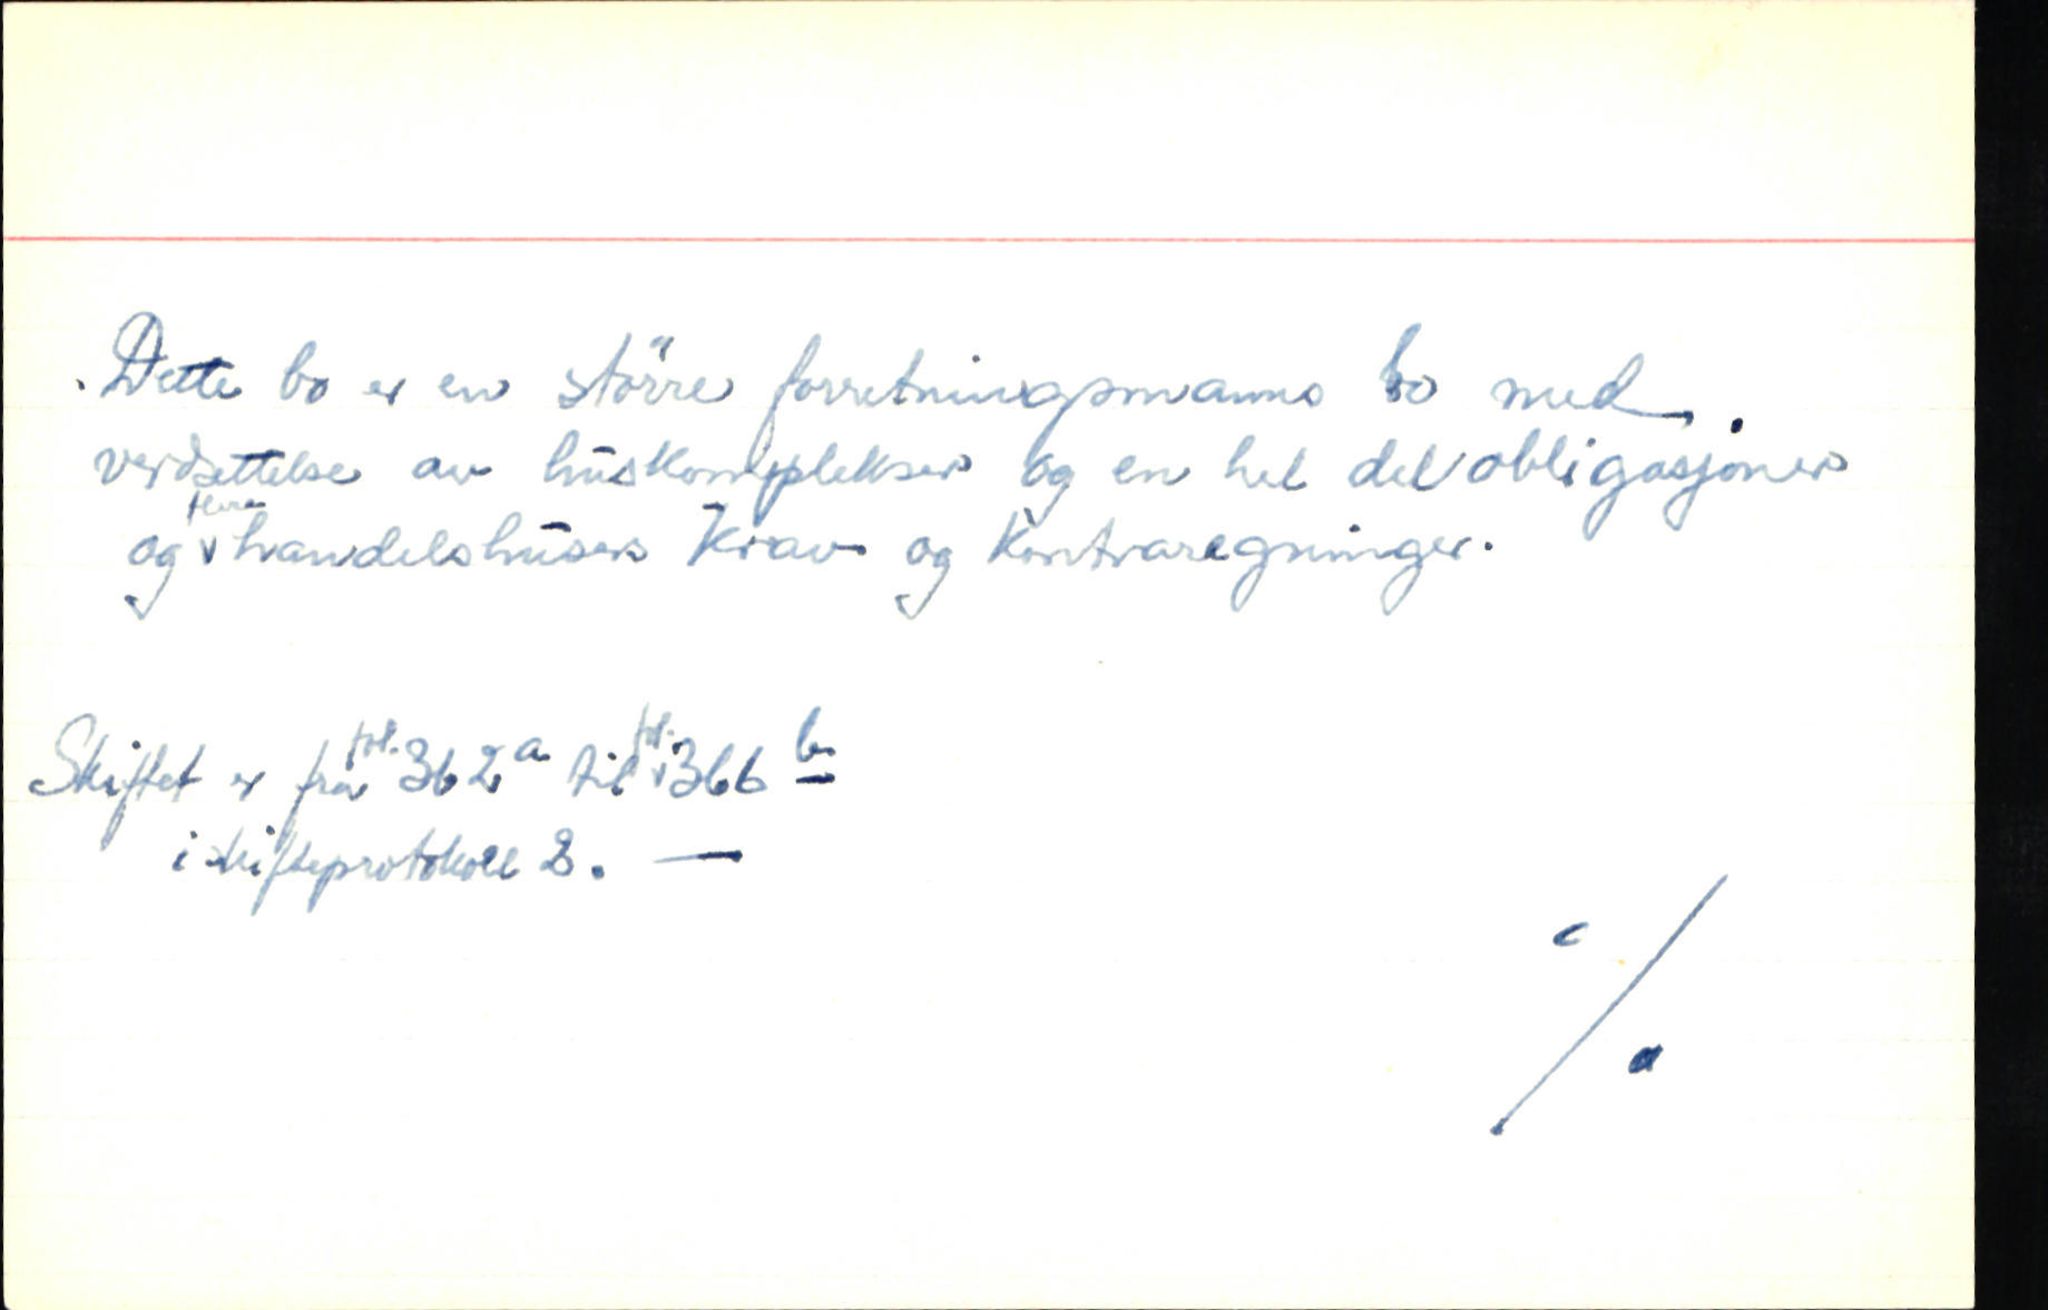 Dette bo er en större forretningsmanns bo med
verdsettelse av huskomplekser og en hel del obligasjoner
og flere handelshusers krav og kontraregninger.
Skiftet er fra fol. 362 a til fol. 366 b
i skifteprotokoll 2. —
c / a